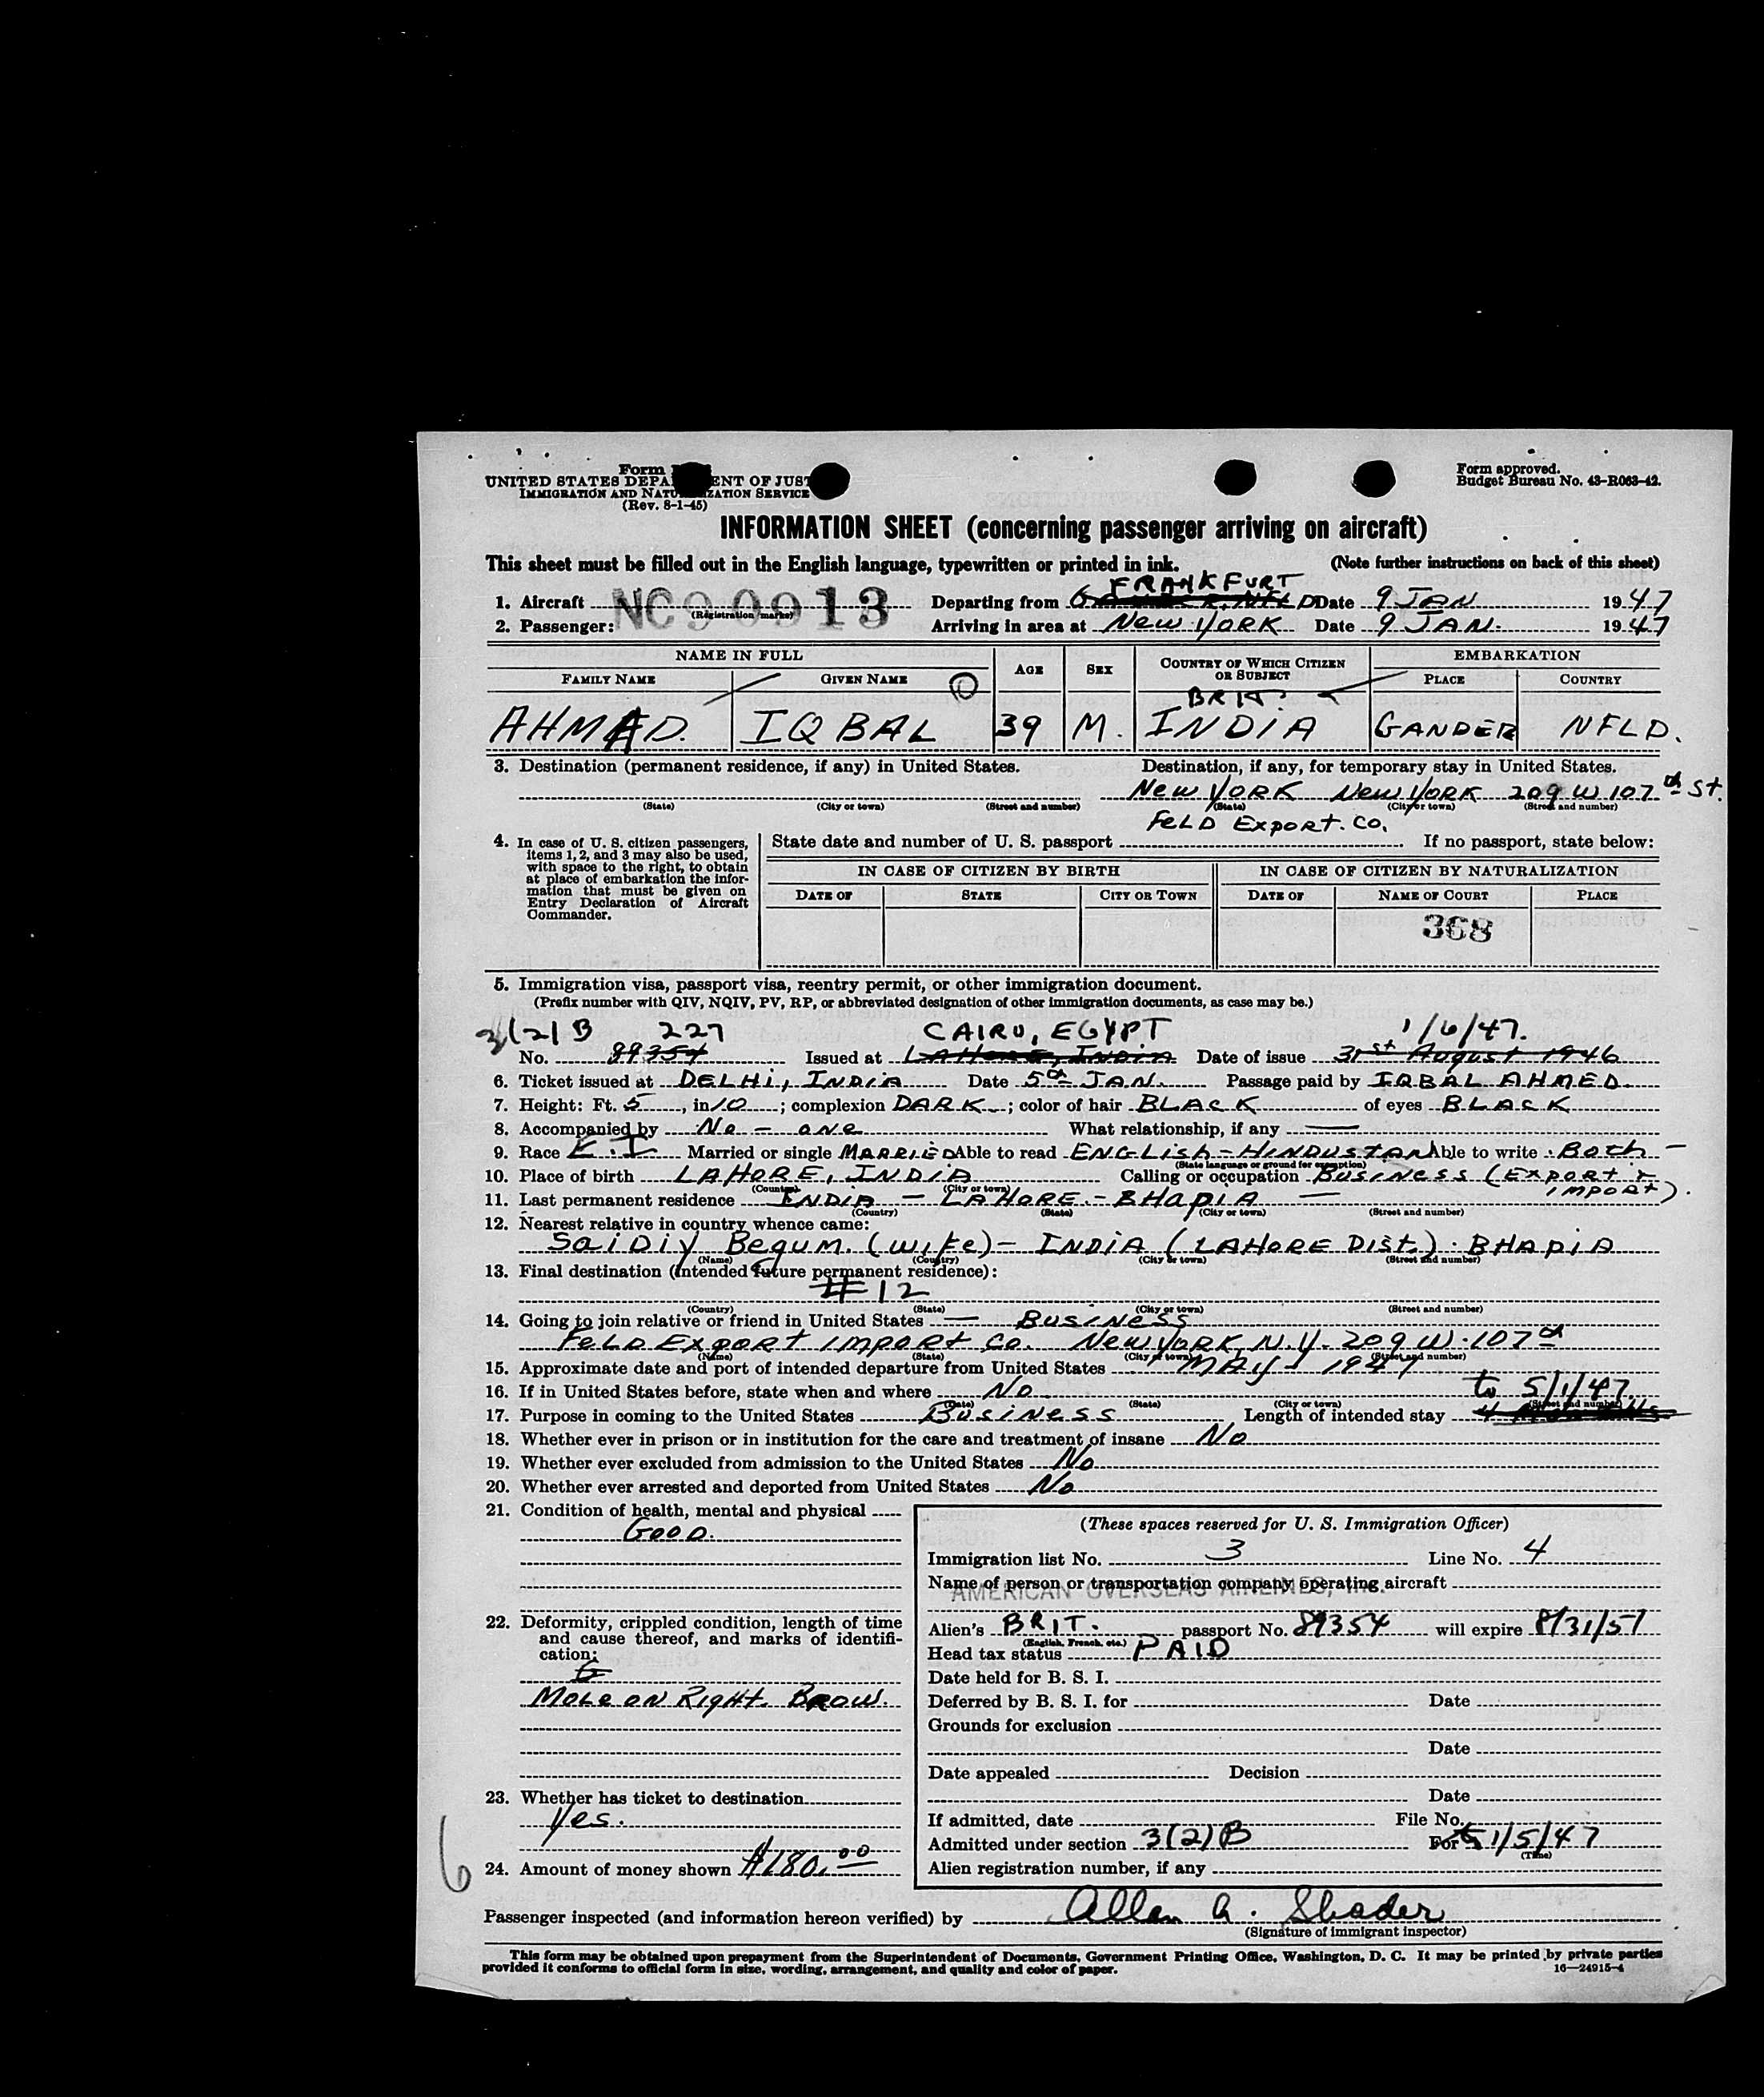 Form
UNITED STATES DEPA ENT OF JUST
IMMIGRATION AND NATU ZATION SERVICE
(Rev. 8-1-45)
Form approved.
Budget Bureau No. 43-R063-42.
INFORMATION SHEET (concerning passenger arriving on aircraft)
This sheet must be filled out in the English language, typewritten or printed in ink. (Note further instructions on back of this sheet)
FRANKFURT
1. Aircraft NC90913 (Registration marks) Departing from NFLD Date 9 JAN 1947
2. Passenger: Arriving in area at New YORK Date 9 JAN. 1947
NAME IN FULL AGE SEX COUNTRY OF WHICH CITIZEN OR SUBJECT EMBARKATION
FAMILY NAME GIVEN NAME PLACE COUNTRY
BRIT.
AHMAD. IQBAL 39 M. INDIA GANDER NFLD.
3. Destination (permanent residence, if any) in United States. Destination, if any, for temporary stay in United States.
New YORK New YORK 209 W 107th St.
(State) (City or town) (Street and number) (State) (City or town) (Street and number)
FELD Export. Co.
4. In case of U. S. citizen passengers, items 1, 2, and 3 may also be used, with space to the right, to obtain at place of embarkation the information that must be given on Entry Declaration of Aircraft Commander.
State date and number of U. S. passport If no passport, state below:
IN CASE OF CITIZEN BY BIRTH IN CASE OF CITIZEN BY NATURALIZATION
DATE OF STATE CITY OR TOWN DATE OF NAME OF COURT PLACE
368
5. Immigration visa, passport visa, reentry permit, or other immigration document.
(Prefix number with QIV, NQIV, PV, RP, or abbreviated designation of other immigration documents, as case may be.)
3(2)B 227 CAIRO, EGYPT 1/6/47.
No. 89354 Issued at LAHORE, INDIA Date of issue 31st August 1946
6. Ticket issued at DELHI, INDIA Date 5th JAN. Passage paid by IQBAL AHMED.
7. Height: Ft. 5, in 10; complexion DARK; color of hair BLACK of eyes BLACK
8. Accompanied by No - one What relationship, if any —
9. Race E. I. Married or single MARRIED Able to read ENGLISH - HINDUSTAN Able to write Both -
(State language or ground for exemption)
10. Place of birth LAHORE, INDIA Calling or occupation BUSINESS (EXPORT & IMPORT).
(Country) (City or town)
11. Last permanent residence INDIA - LAHORE - BHAPIA —
(Country) (State) (City or town) (Street and number)
12. Nearest relative in country whence came:
SaiDiy Begum. (wife) - INDIA (LAHORE Dist.) . BHAPIA
(Name) (Country) (City or town) (Street and number)
13. Final destination (intended future permanent residence):
# 12
(Country) (State) (City or town) (Street and number)
14. Going to join relative or friend in United States — BUSINESS
FELD EXPORT IMPORT Co. New YORK, N.Y. 209 W. 107th
(Name) (State) (City or town) (Street and number)
15. Approximate date and port of intended departure from United States MAY - 1947
16. If in United States before, state when and where No
(Date) (State) (City or town) (Street and number)
to 5/1/47.
17. Purpose in coming to the United States Business Length of intended stay 4
18. Whether ever in prison or in institution for the care and treatment of insane No
19. Whether ever excluded from admission to the United States No
20. Whether ever arrested and deported from United States No
21. Condition of health, mental and physical
GOOD.
22. Deformity, crippled condition, length of time and cause thereof, and marks of identification:
MOLE ON RIGHT. BROW.
23. Whether has ticket to destination
Yes.
24. Amount of money shown $180.00
6
(These spaces reserved for U. S. Immigration Officer)
Immigration list No. 3 Line No. 4
Name of person or transportation company operating aircraft
AMERICAN OVERSEAS AIRLINES, INC.
Alien's BRIT. passport No. 89354 will expire 8/31/51
(English, French, etc.)
Head tax status PAID
Date held for B. S. I.
Deferred by B. S. I. for Date
Grounds for exclusion
Date
Date appealed Decision
Date
If admitted, date File No.
Admitted under section 3(2)B For 1/5/47
(Time)
Alien registration number, if any
Passenger inspected (and information hereon verified) by Allen A. Shader
(Signature of immigrant inspector)
This form may be obtained upon prepayment from the Superintendent of Documents, Government Printing Office, Washington, D. C. It may be printed by private parties
provided it conforms to official form in size, wording, arrangement, and quality and color of paper. 16—24915-4